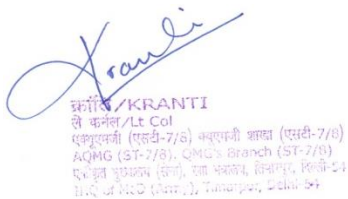 Kranti
क्रांति/KRANTI
ले कर्नल/Lt Col
एक्यूएमजी (एसटी-7/8) क्यूएमजी शाखा (एसटी-7/8)
AQMG (ST-7/8), QMG's Branch (ST-7/8)
एकीकृत मुख्यालय (सेना), रक्षा मंत्रालय, तिमारपुर, दिल्ली-54
IHQ of MoD (Army), Timarpur, Delhi-54